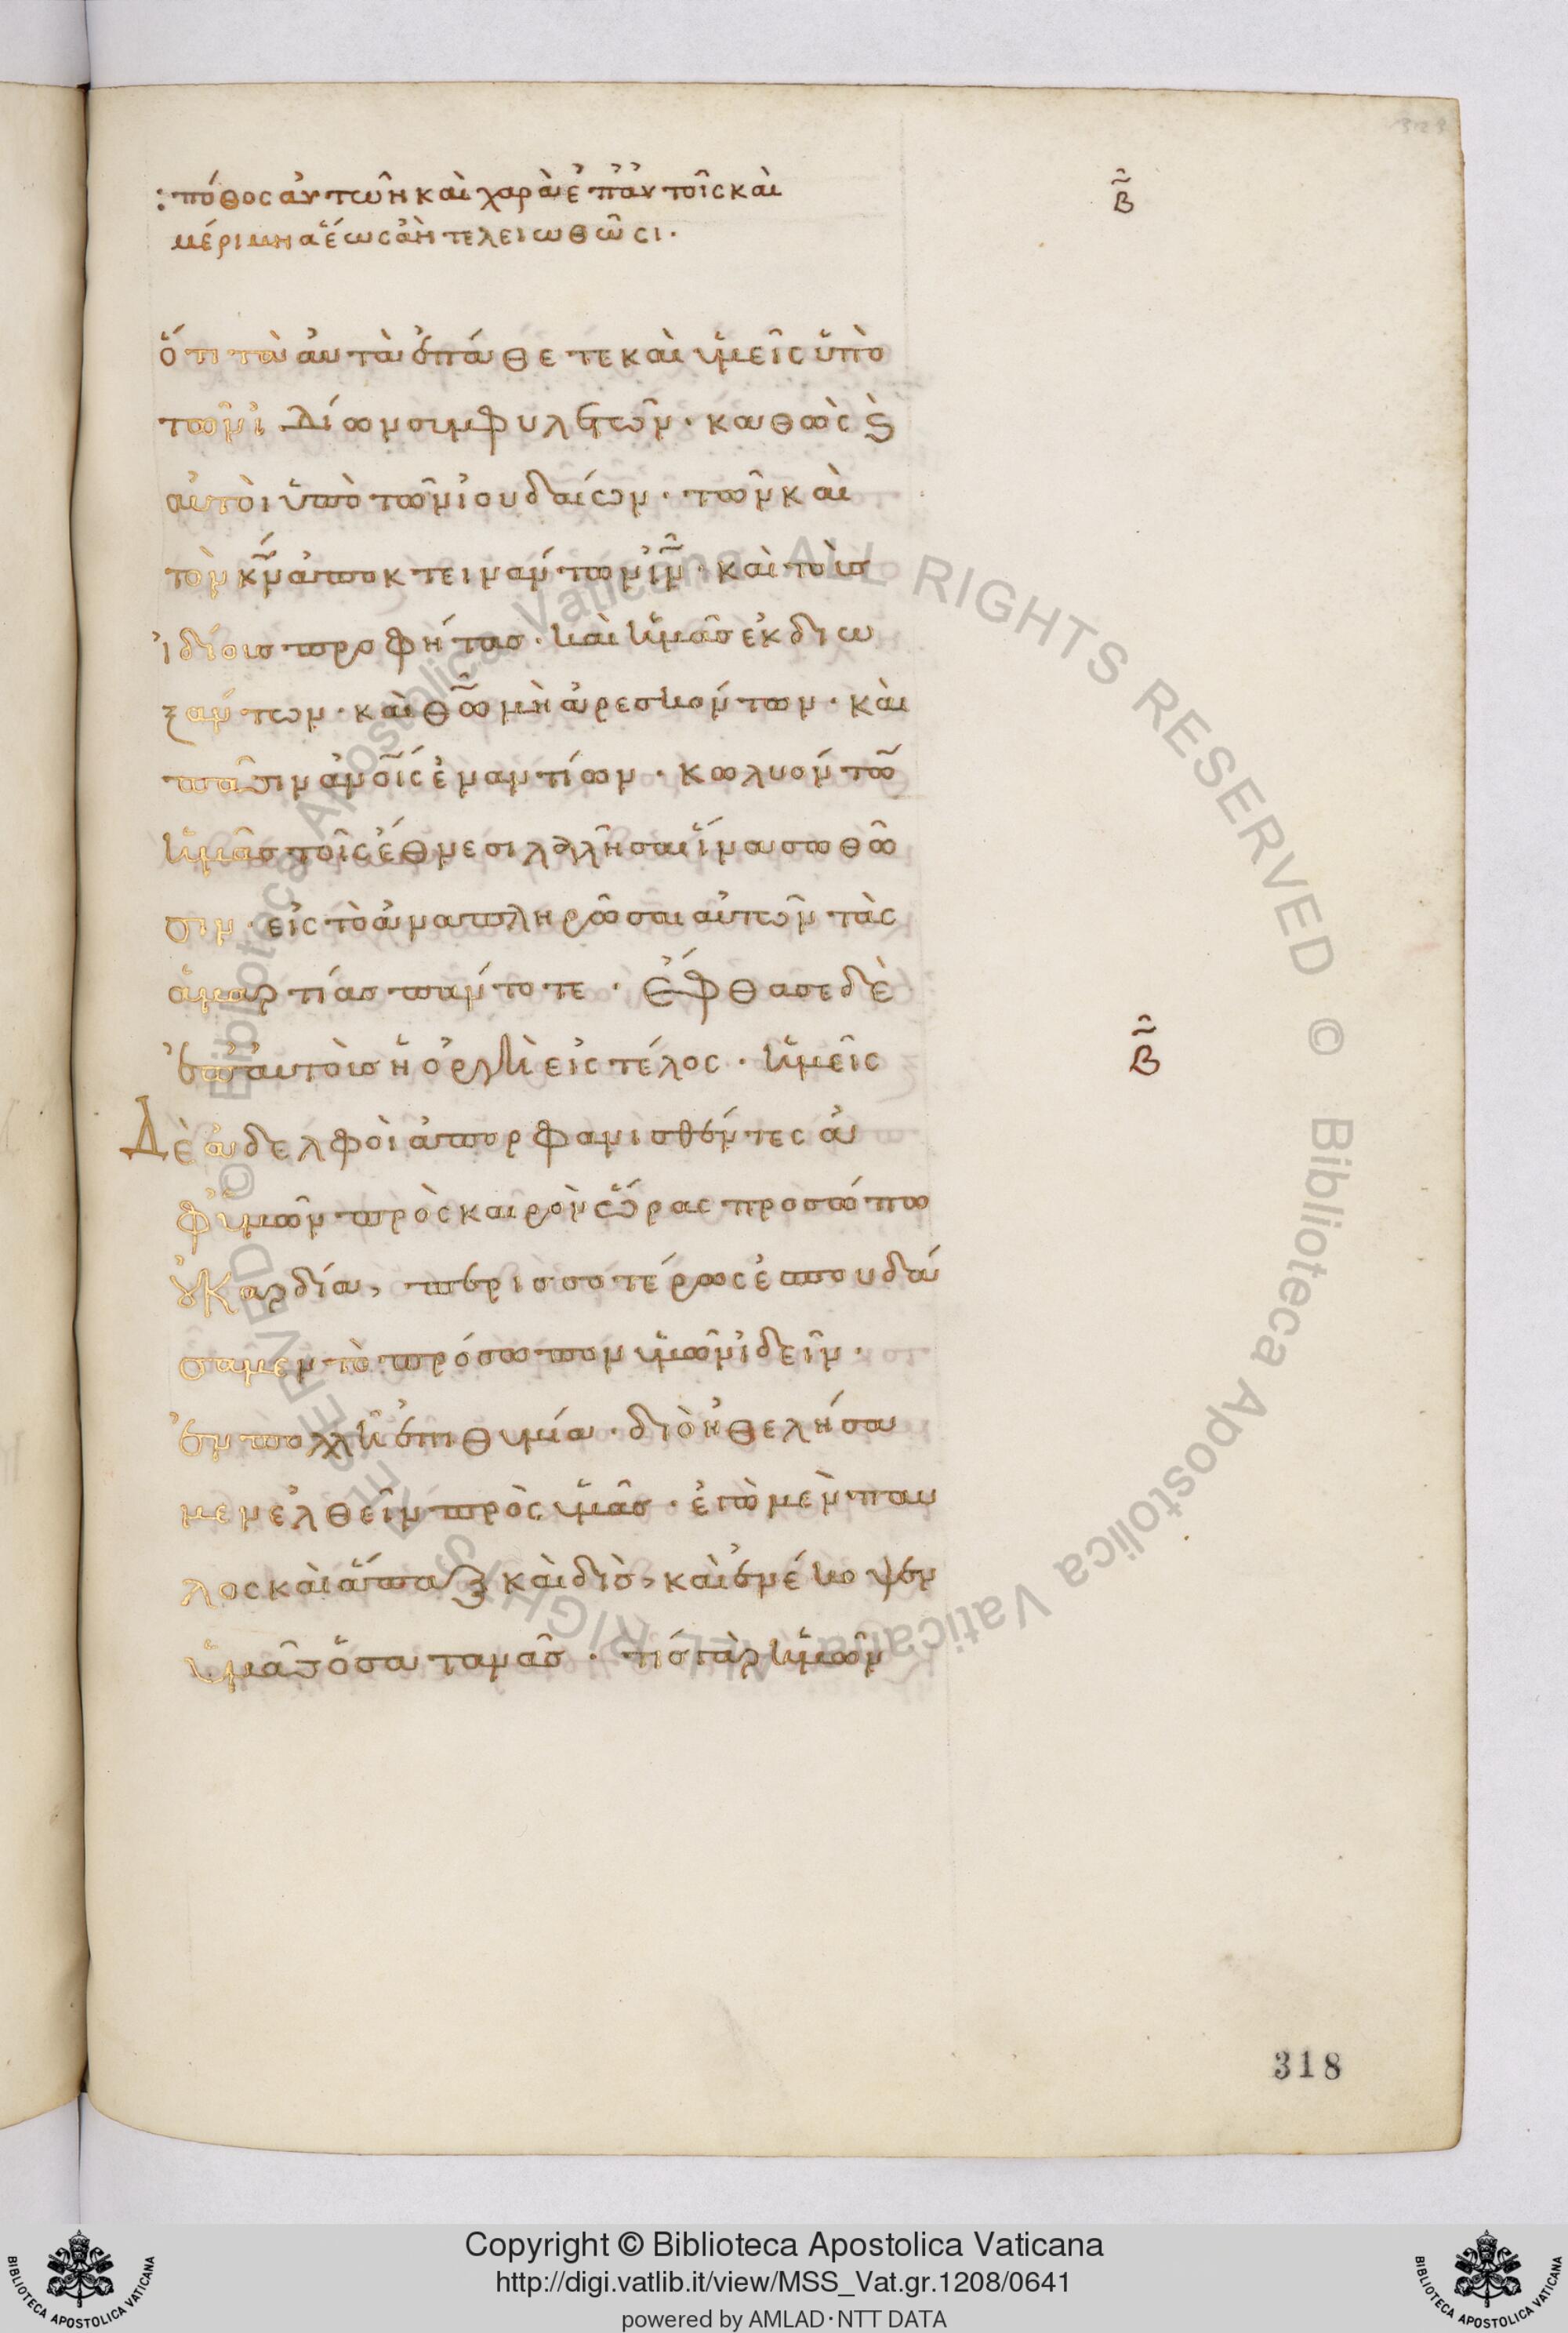 : πόθος αὐτῶν καὶ χαρὰ ἐπ' αὐτοῖς καὶ
μέριμνα ἕως ἂν τελειωθῶσι.
β
ὅτι τὰ αὐτὰ ἐπάθετε καὶ ὑμεῖς ὑπὸ
τῶν ἰδίων συμφυλετῶν · καθὼς ϗ
αὐτοὶ ὑπὸ τῶν ἰουδαίων · τῶν καὶ
τὸν κ̅ν̅ ἀποκτεινάντων ι̅ν̅ · καὶ τοὺς
ἰδίους προφήτας · καὶ ἡμᾶς ἐκδιω
ξάντων · καὶ θ̅ω̅ μὴ ἀρεσκόντων · καὶ
πᾶσιν ἀνοις ἐναντίων · κωλυόντω
ἡμᾶς τοῖς ἔθνεσι λαλῆσαι ἵνα σωθῶ
σιν · εἰς τὸ ἀναπληρῶσαι αὐτῶν τὰς
ἁμαρτίας πάντοτε · ἔφθασε δὲ
ἐπ' αὐτοὺς ἡ ὀργὴ εἰς τέλος · ἡμεῖς
β
Δὲ ἀδελφοὶ ἀπορφανισθέντες ἀ
φ' ὑμῶν πρὸς καιρὸν ὥρας προσώπω
οὐ καρδία, περισσοτέρως ἐσπουδά
σαμεν τὸ πρόσωπον ὑμῶν ἰδεῖν ·
ἐν πολλῆ ἐπιθυμία · διὸ ἠθελήσα
μεν ἐλθεῖν πρὸς ὑμᾶς · ἐγὼ μὲν παυ
λος καὶ ἅπαξ καὶ δὶς, καὶ ἐνέκοψεν
ἡμᾶς ὁ σατανᾶς · τίς γὰρ ἡμῶν
318
© Biblioteca Apostolica Vaticana ALL RIGHTS RESERVED © Biblioteca Apostolica Vaticana ALL RIGHTS RESERVED
BIBLIOTECA APOSTOLICA VATICANA
Copyright © Biblioteca Apostolica Vaticana
http://digi.vatlib.it/view/MSS_Vat.gr.1208/0641
powered by AMLAD·NTT DATA
BIBLIOTECA APOSTOLICA VATICANA